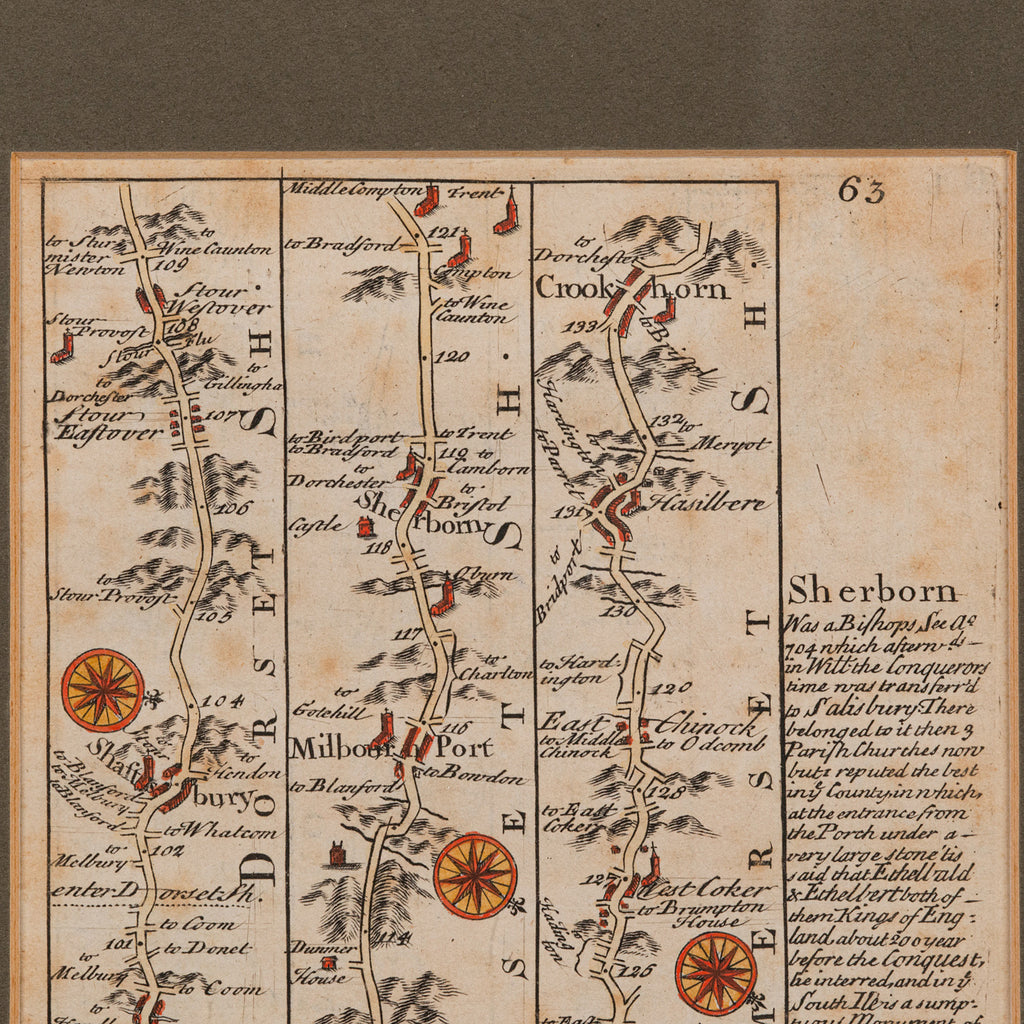 63
to Stur=
mister
Newton
to
Wine Caunton
109
Stour
Westover
Stour
Provost
108
Stour
Flu
to
Gillingha
to
Dorchester
Stour
Eastover
107
106
to
Stour Provost
105
104
Shaftsbury
to
Hendon
to Blanford
to Melbury
to Blanford
to Whatcom
to
Melbury
102
enter Dorset Sh.
to Coom
101
to Donet
to
Melbury
to Coom
to
DORSET SH.
Middle Compton
Trent
121
to Bradford
Compton
to Wine
Caunton
120
to Birdport
to Trent
to Bradford
119
to
Camborn
to
Dorchester
to
Bristol
Sherborn
Castle
118
Oburn
117
to
Charlton
to
Gotehill
116
Milbourn Port
to Bowdon
to Blanford
114
Dunmer
House
SOMERSET SH.
to
Dorchester
Crookhorn
133
to Bristol
132
to
Meryot
Harding to
to Parret
131
Hasilbere
to
Bridport
130
to Hard=
ington
120
East Chinock
to Middle
Chinock
to Odcomb
128
to East
Coker
127
West Coker
to Brumpton
House
Hading
ton
126
to East
MERSET SH.
Sherborn
Was a Bishops See Ao
704 which afterwds
in Will: the Conquerors
time was transferr'd
to Salisbury There
belonged to it then 3
Parish Churches now
but 1 reputed the best
in ye County, in which,
at the entrance from
the Porch under a
very large stone 'tis
said that Ethelbald
& Ethelbert both of
them Kings of Eng=
land, about 200 year
before the Conquest,
lie interred, and in ye
South Ile is a sump=
tuous Monument of